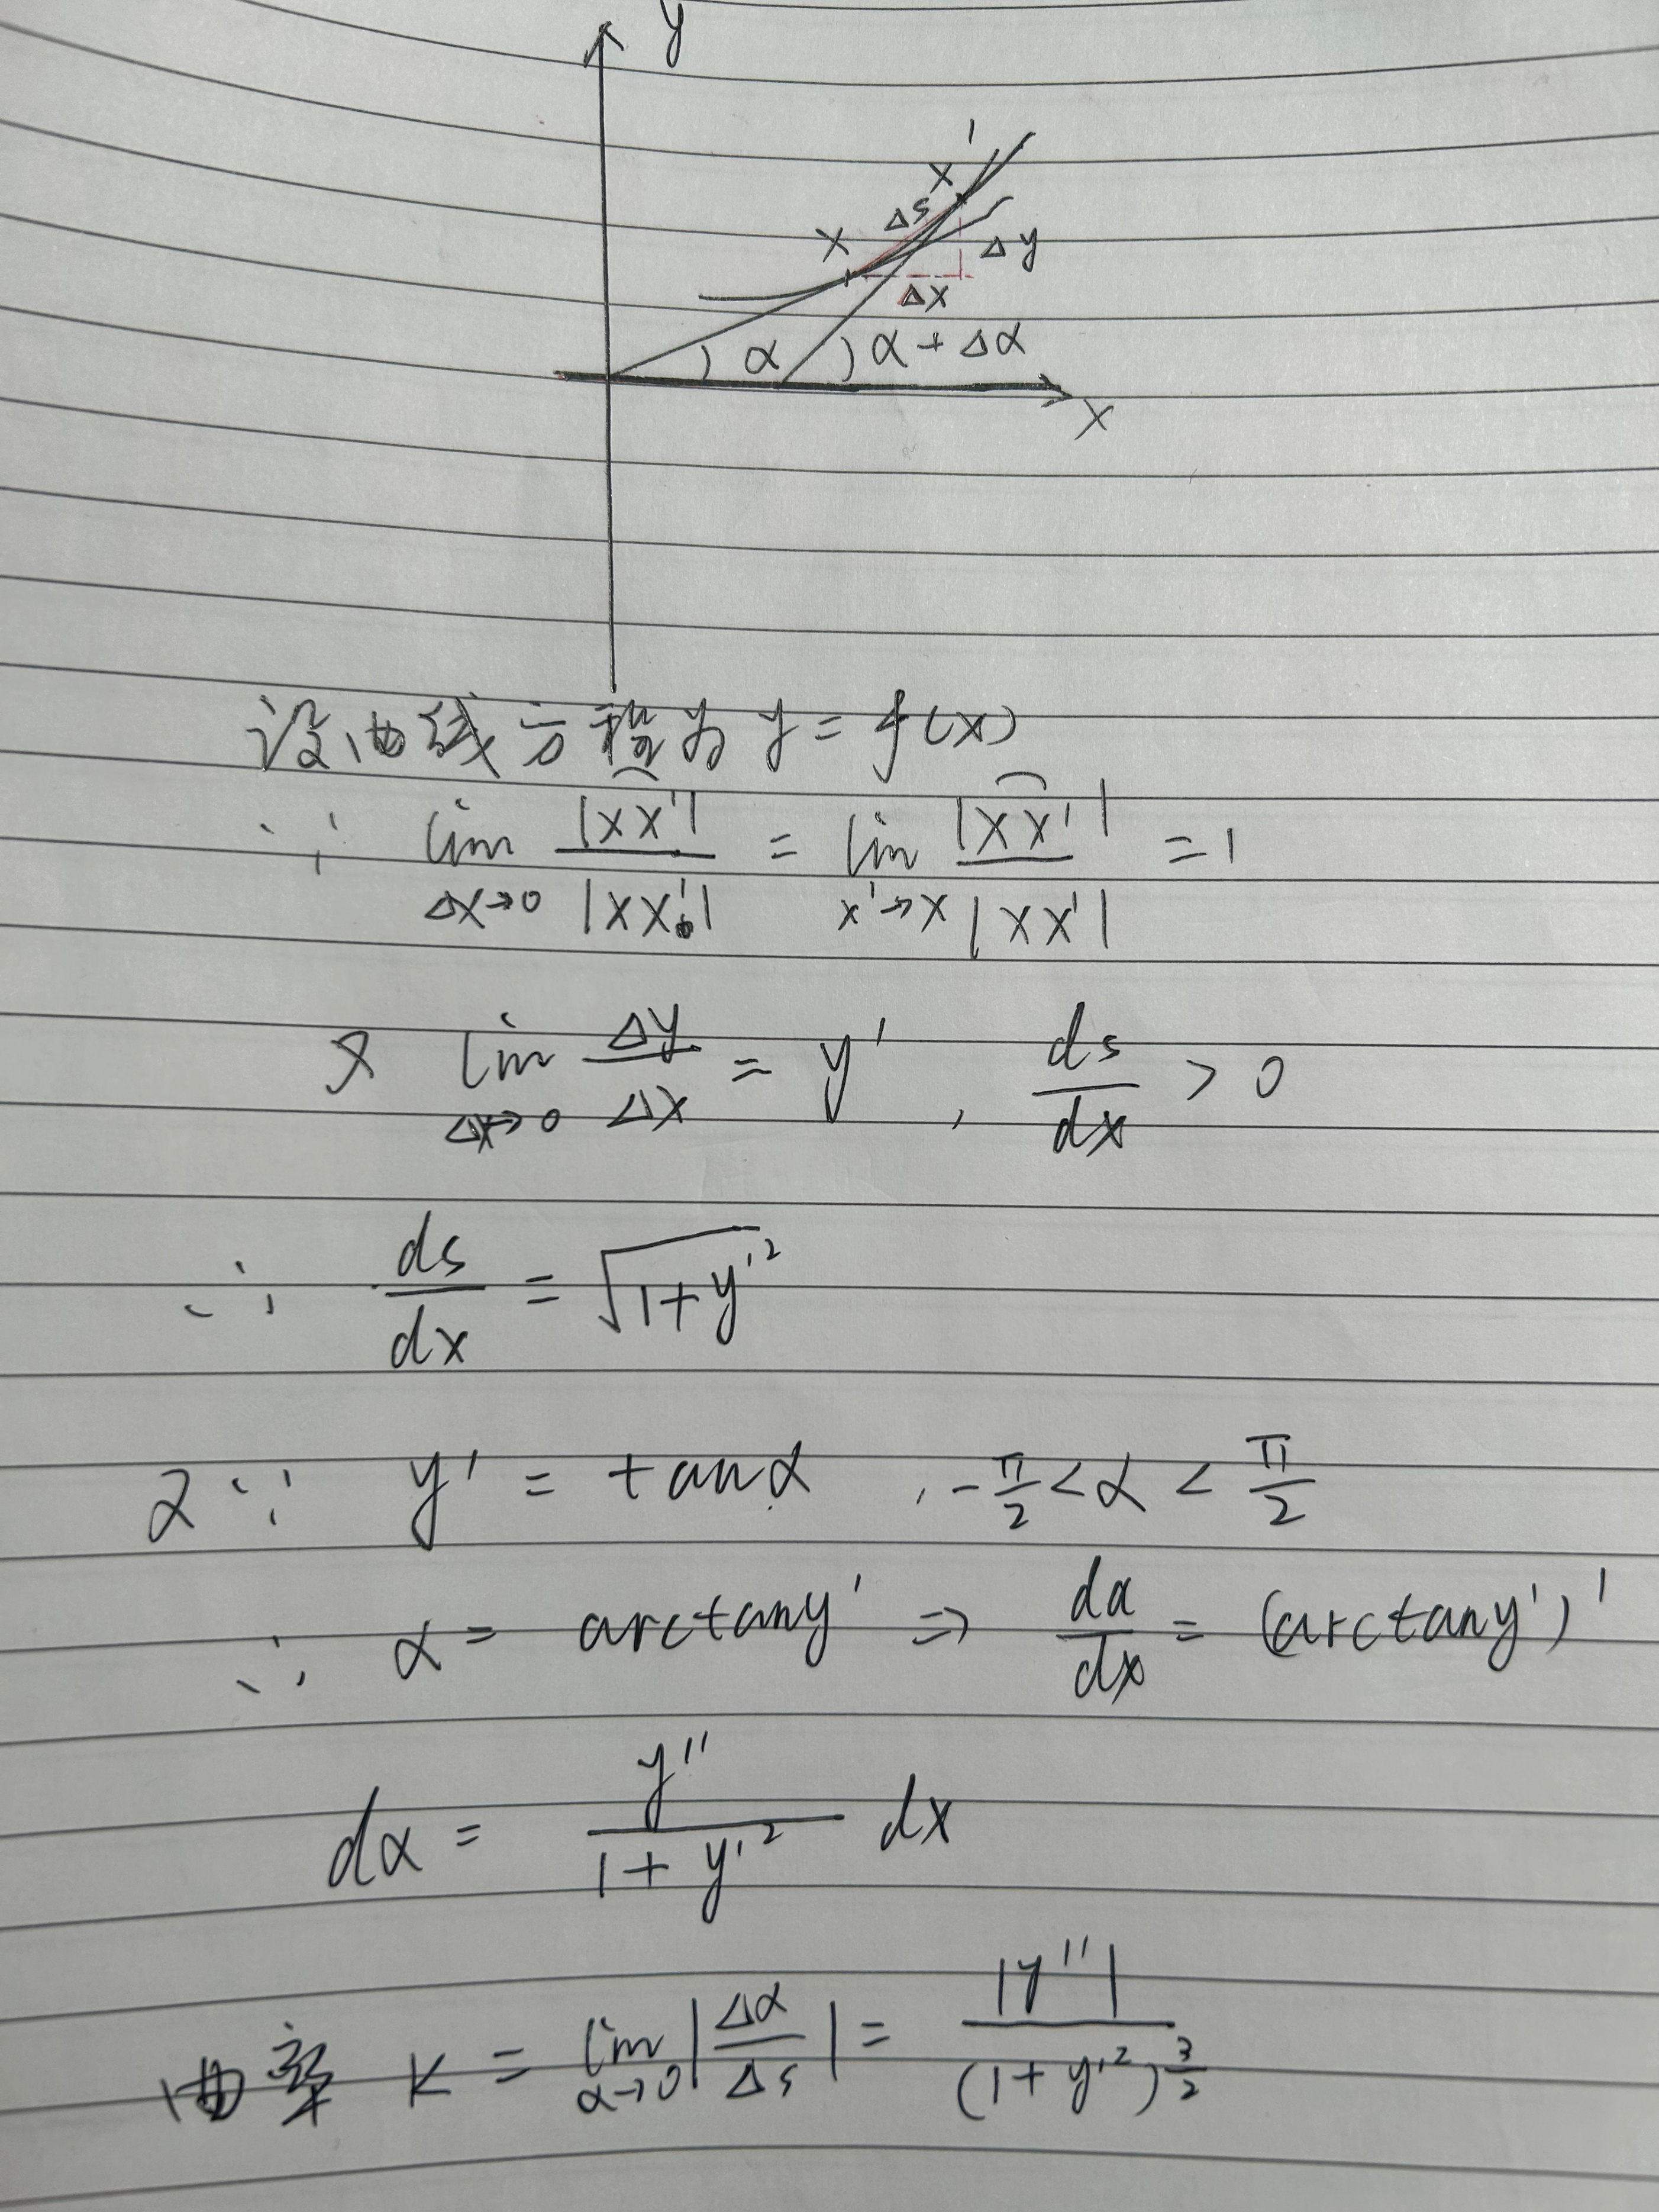 y
X'
Δs
X
Δy
Δx
α
α + Δα
X
设曲线方程为 y = f(x)
∵ lim_{Δx→0} |X͡X'| / |XX'| = lim_{x'→x} |X͡X'| / |XX'| = 1
又 lim_{Δx→0} Δy/Δx = y' , ds/dx > 0
∴ ds/dx = √(1+y'²)
又∵ y' = tanα , -π/2 < α < π/2
∴ α = arctany' ⇒ dα/dx = (arctany')'
dα = y''/(1+y'²) dx
曲率 K = lim_{α→0} |Δα/Δs| = |y''| / (1+y'²)^{3/2}